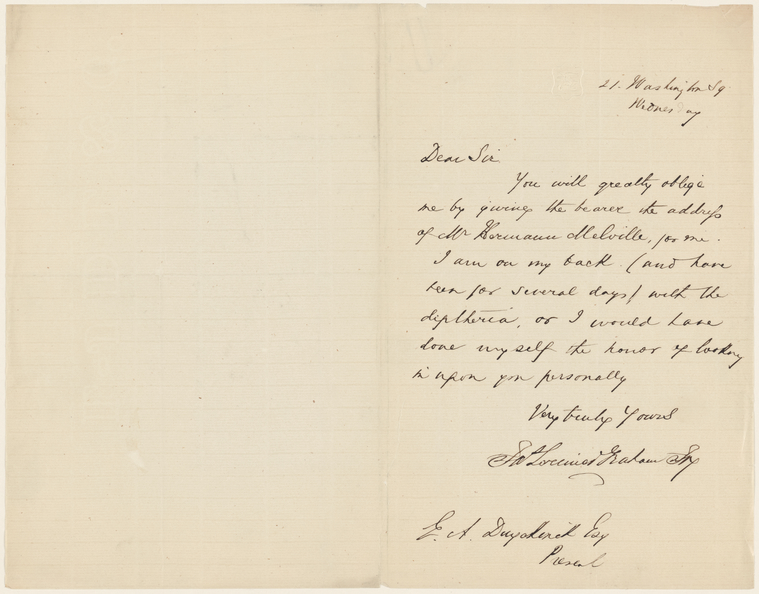 21. Washington Sq
Wednesday
Dear Sir
You will greatly oblige
me by giving the bearer the address
of Mr Hermann Melville, for me.
I am on my back (and have
been for several days) with the
diptheria, or I would have
done myself the honor of looking
in upon you personally
Very truly Yours
Lorimer Graham
E. A. Duyckinck Esq
Present